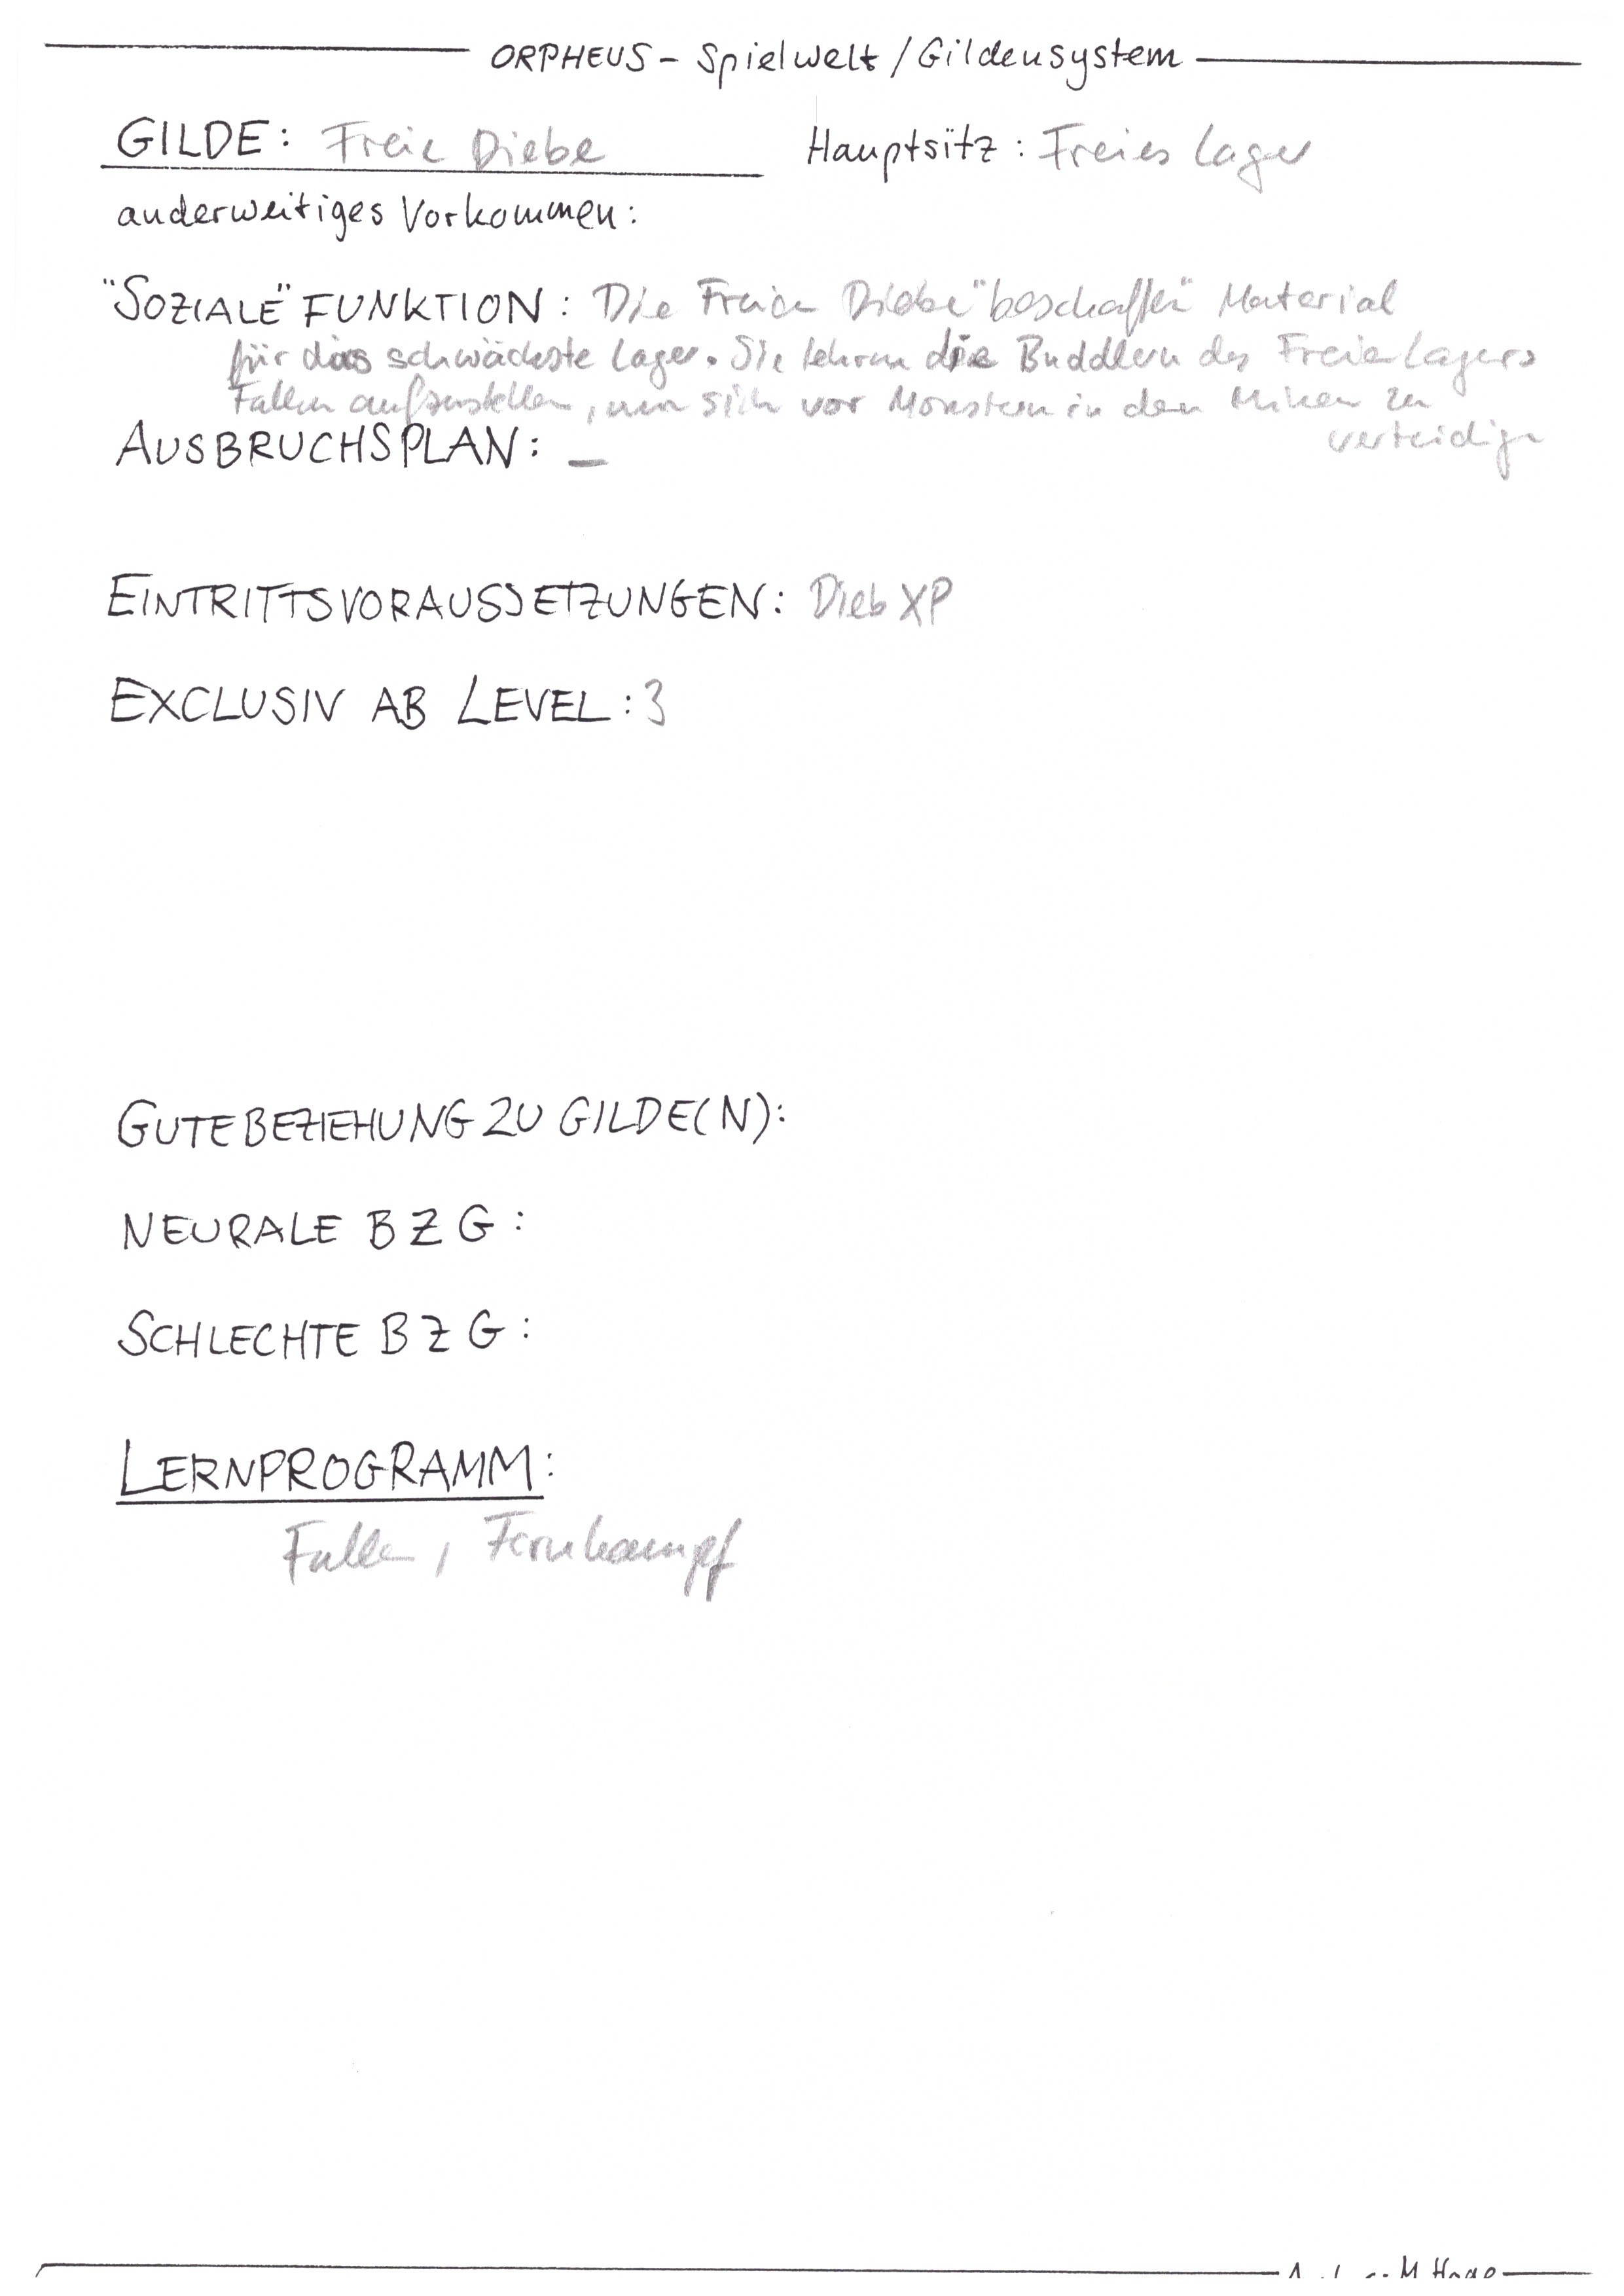 ORPHEUS - Spielwelt / Gildensystem
GILDE: Freie Diebe Hauptsitz: Freies Lager
anderweitiges Vorkommen:
"SOZIALE" FUNKTION: Die Freien Diebe "beschaffen" Material
für das schwächste Lager. Sie lehren die Buddlern des Freien Lagers
Fallen aufzustellen, um sich vor Monstern in den Minen zu
verteidigen
AUSBRUCHSPLAN: –
EINTRITTSVORAUSSETZUNGEN: Dieb XP
EXCLUSIV AB LEVEL: 3
GUTE BEZIEHUNG ZU GILDE(N):
NEURALE B Z G:
SCHLECHTE B Z G:
LERNPROGRAMM:
Fallen, Fernkampf